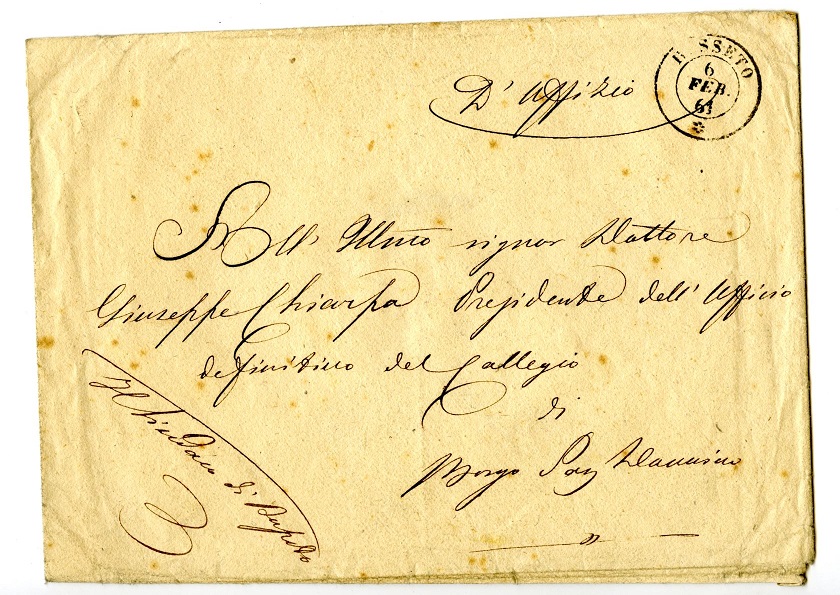 D'Uffizio
BUSSETO
6
FEB.
61
All' Illmo signor Dottore
Giuseppe Chiarpa Presidente dell'Ufficio
definitivo del Collegio
di
Borgo San Donnino
Il Sindaco di Busseto